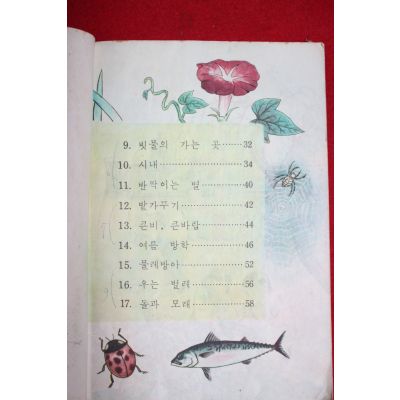 9. 빗물의 가는 곳……32
10. 시내………………34
11. 반짝이는 별………40
12. 밭가꾸기…………42
13. 큰비, 큰바람………44
14. 여름 방학…………46
15. 물레방아…………52
16. 우는 벌레…………56
17. 돌과 모래…………58